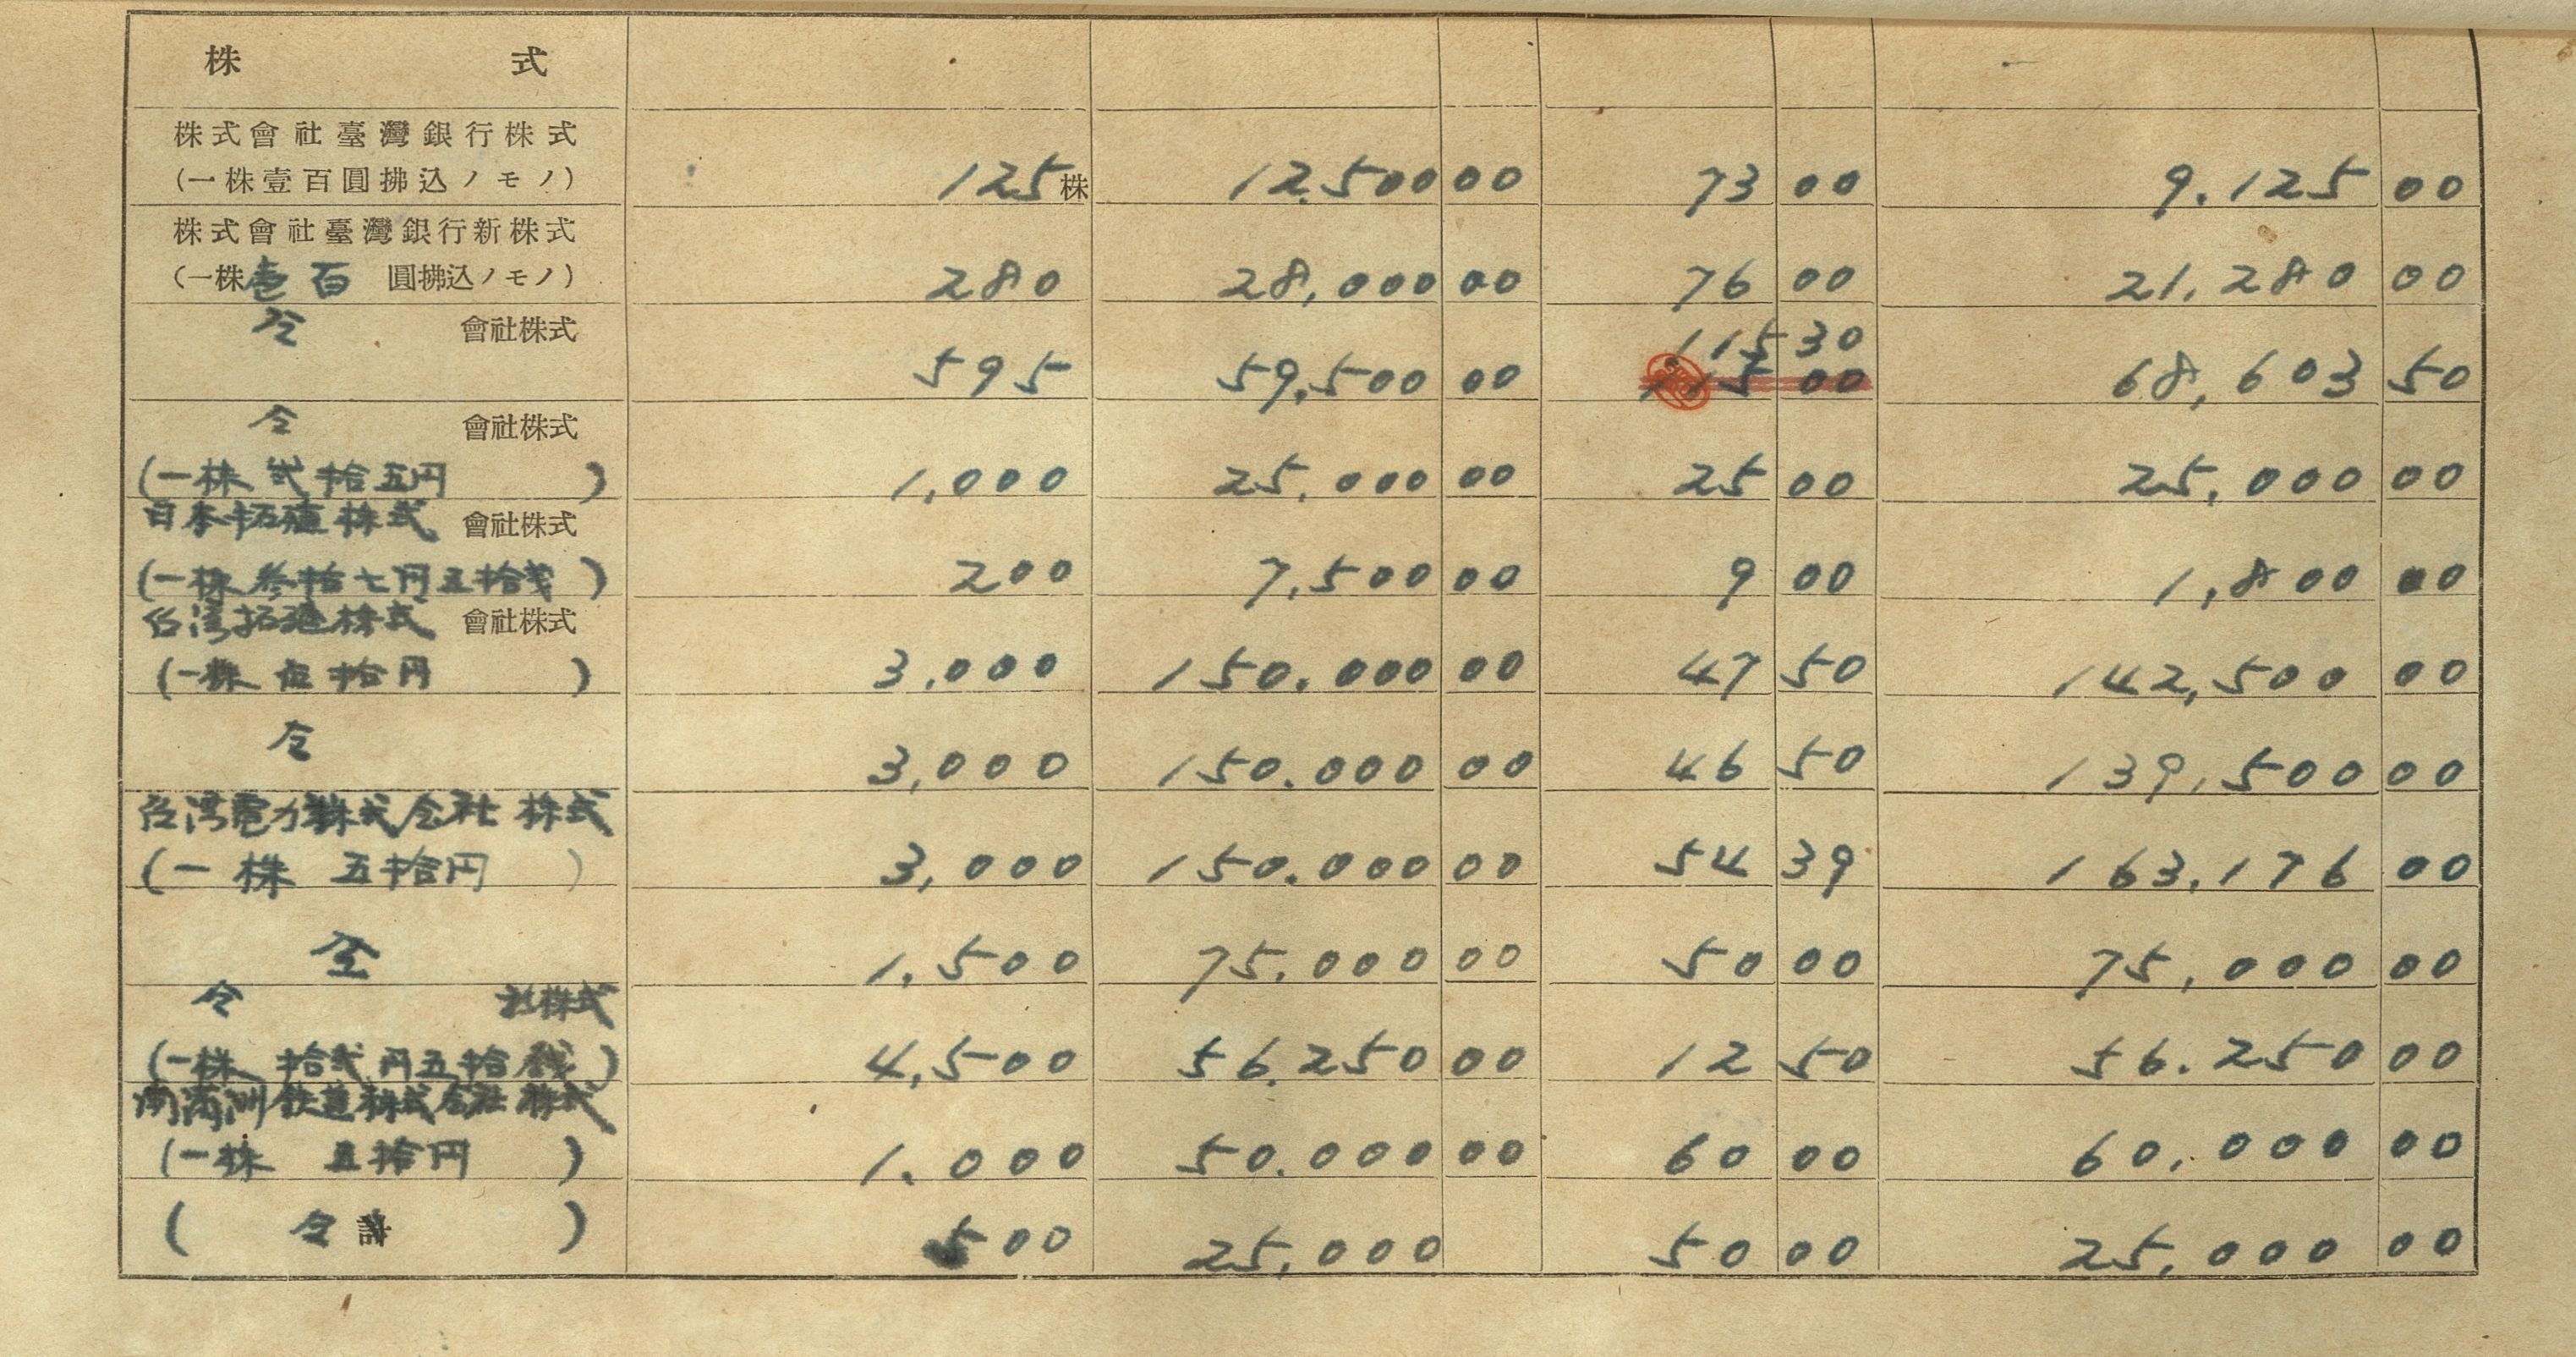 株 式
株式會社臺灣銀行株式
(一株壹百圓拂込ノモノ) 125株 12.500 00 73 00 9.125 00
株式會社臺灣銀行新株式
(一株壱百 圓拂込ノモノ) 280 28,000 00 76 00 21,280 00
仝 會社株式 115 30
595 59,500 00 115 00 68,603 50
仝 會社株式
(一株 弐拾五円 ) 1,000 25,000 00 25 00 25,000 00
日本拓殖株式 會社株式
(一株参拾七円五拾銭 ) 200 7,500 00 9 00 1,800 00
台湾拓殖株式 會社株式
(一株 五拾円 ) 3,000 150.000 00 47 50 142,500 00
仝 3,000 150.000 00 46 50 139,500 00
台湾電力株式会社 株式
(一株 五拾円 ) 3,000 150.000 00 54 39 163,176 00
仝 1,500 75.000 00 50 00 75,000 00
仝 社株式
(一株 拾弐円五拾銭 ) 4,500 56.250 00 12 50 56.250 00
南満洲鉄道株式会社 株式
(一株 五拾円 ) 1.000 50.000 00 60 00 60,000 00
( 仝計 ) 500 25,000 50 00 25,000 00